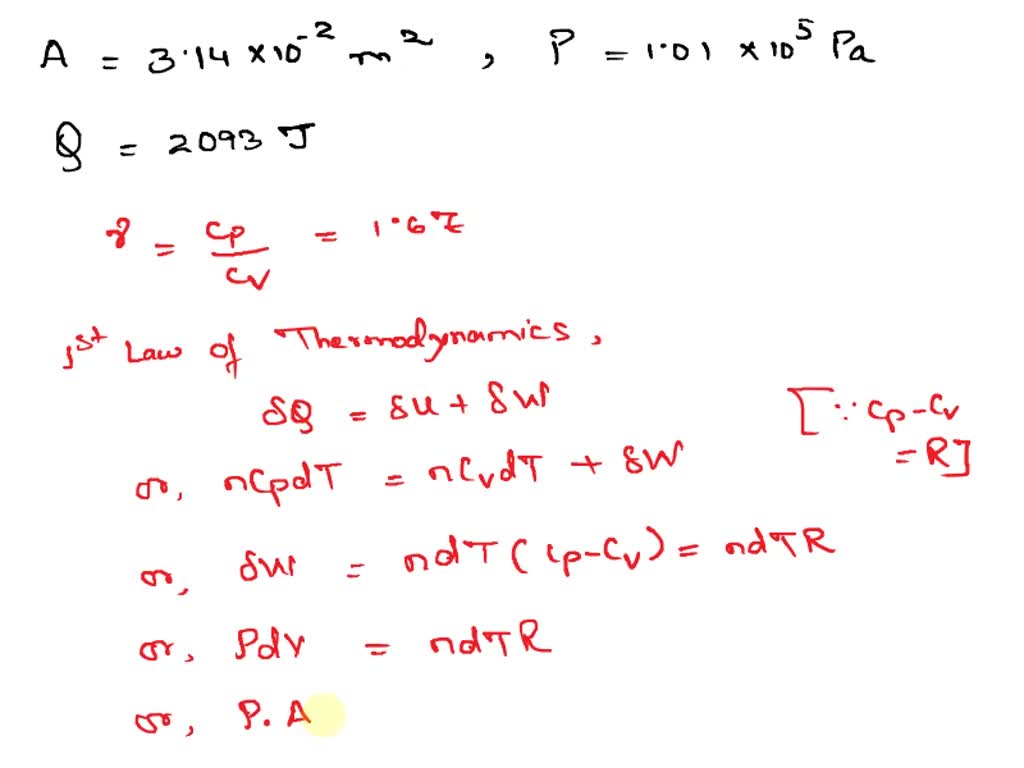 A = 3.14 × 10⁻² m² , P = 1.01 × 10⁵ Pa
Q = 2093 J
γ = Cp/Cv = 1.67
1st Law of Thermodynamics,
δQ = δU + δW
or, nCpdT = nCvdT + δW [∵ Cp-Cv = R]
or, δW = ndT(Cp-Cv) = ndTR
or, Pdv = ndTR
or, P. A